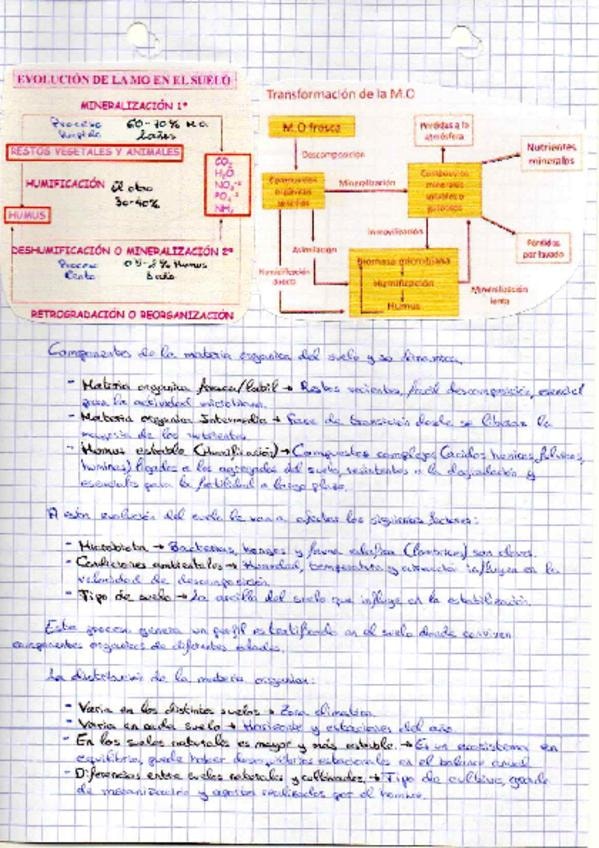 EVOLUCIÓN DE LA MO EN EL SUELO
MINERALIZACIÓN 1ª
Proceso 60-70% M.O.
Rápido
RESTOS VEGETALES Y ANIMALES
CO2
H2O
NO3
PO4
NH4
HUMIFICACIÓN El otro
30-40%
HUMUS
DESHUMIFICACIÓN O MINERALIZACIÓN 2ª
Proceso % Humus
Lento
RETROGRADACIÓN O REORGANIZACIÓN
Transformación de la M.O
M.O fresca
Descomposición
Pérdidas a la
atmósfera
Nutrientes
minerales
Compuestos
orgánicos
sencillos
Mineralización
Compuestos
minerales
solubles o
gaseosos
Inmovilización
Asimilación
Pérdidas
por lavado
Humificación
directa
Biomasa microbiana
Humificación
Humus
Mineralización
lenta
Componentes de la materia organica del suelo y su dinamica.
- Materia organica fresca/labil → Restos recientes, facil descomposición, esencial
para la actividad microbiana.
- Materia organica Intermedia → Fase de transición donde se liberan la
mayoria de los nutrientes.
- Humus estable (Humificación) → Compuestos complejos (acidos humicos, fulvicos,
huminas) ligados a los agregados del suelo, resistentes a la degradación y
esenciales para la fertilidad a largo plazo.
A esta evolución del suelo le van a afectar los siguientes factores:
- Microbiota → Bacterias, hongos y fauna edafica (lombrices) son claves.
- Condiciones ambientales → Humedad, temperatura y aireación influyen en la
velocidad de descomposición.
- Tipo de suelo → La arcilla del suelo que influye en la estabilización.
Este proceso genera un perfil estratificado en el suelo donde conviven
componentes organicos de diferentes edades.
La distribución de la materia organica:
- Varia en los distintos suelos → Zona climatica.
- Varia en cada suelo → Horizonte y estaciones del año.
- En los suelos naturales es mayor y más estable. → Es un ecosistema en
equilibrio, puede haber estacionales en el balance anual.
- Diferencias entre suelos naturales y cultivados. → Tipo de cultivo, grado
de mecanización y aportes realizados por el hombre.